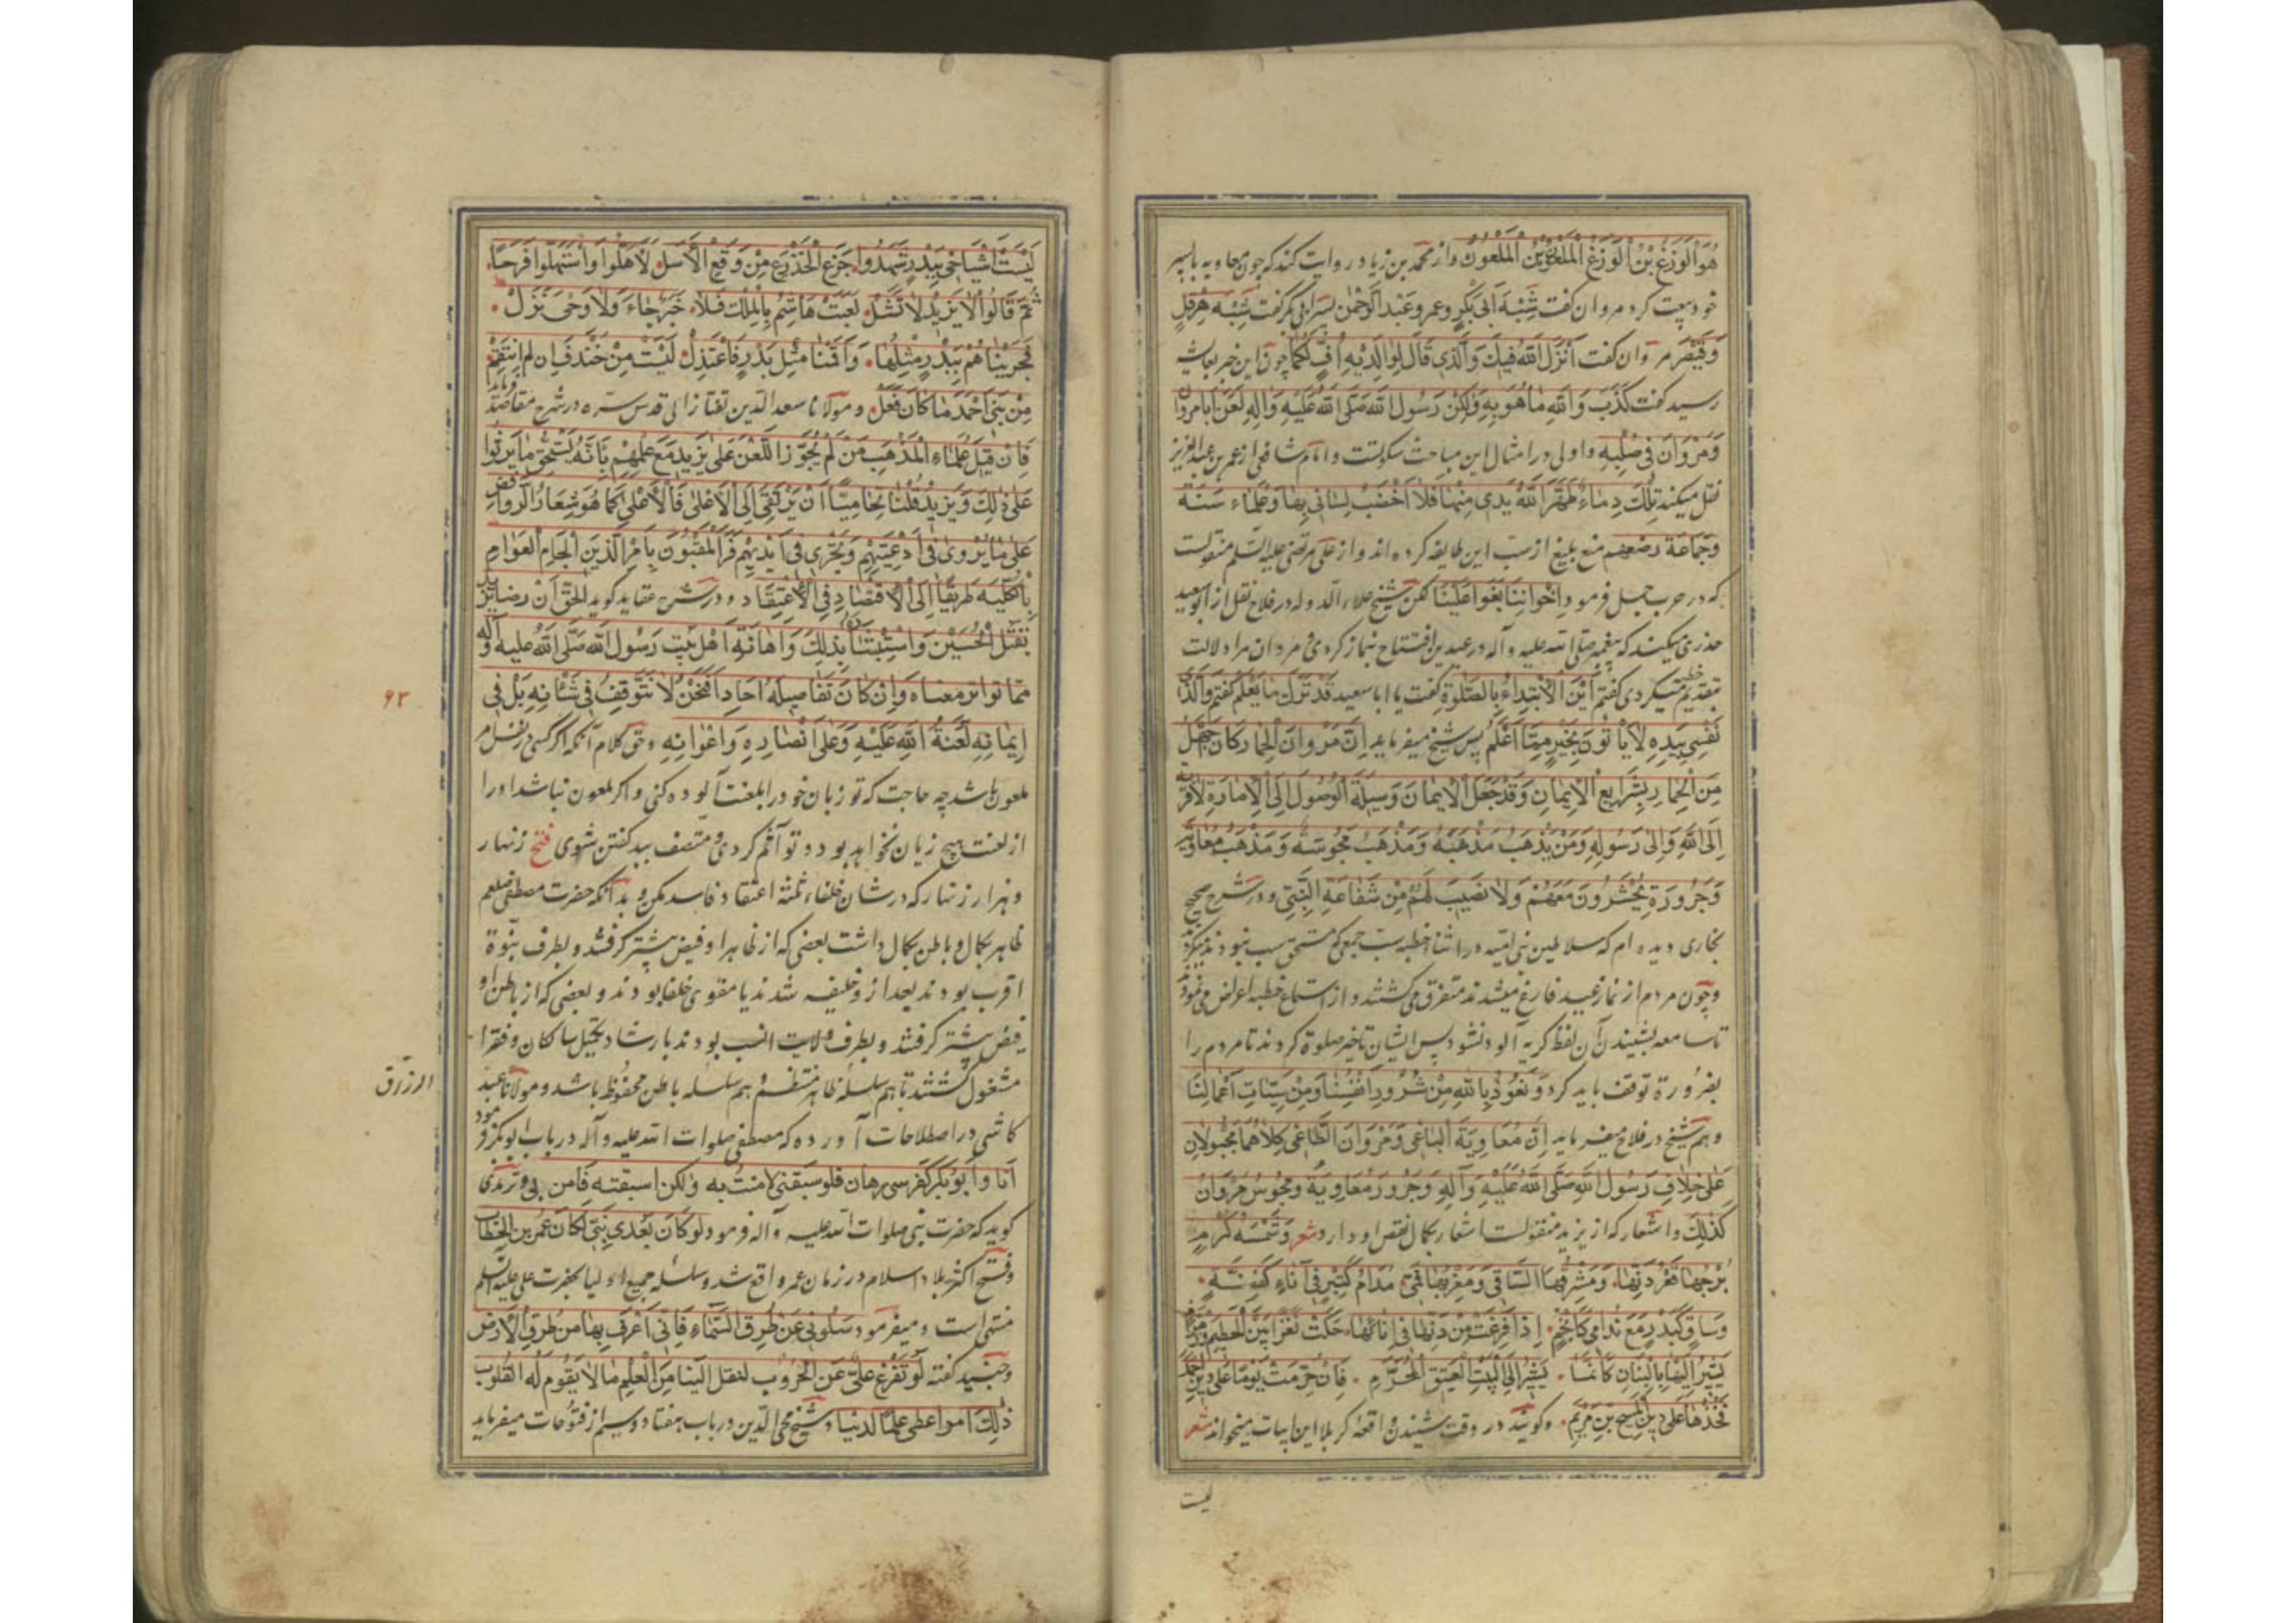 هُوَ الْوَزَغُ بْنُ الْوَزَغِ الْمَلْعُونُ بْنُ الْمَلْعُونُ واز محمد بن زیاد روایت کند که چون معاویه با پسر
خود بیعت کرد مروان گفت سُنّة اَبی بَکْرٍ وعمر وعَبْدالرَّحْمٰن پسر ابی بکر گفت سُنّة هِرَقْلٍ
وَقَیْصَرَ مروان گفت اَنْزَلَ اللّٰهُ فیكَ وَالَّذی قَالَ لِوٰالِدَیْهِ اُفٍّ لَکُمٰا چون این خبر بعایشه
رسید گفت کَذَبَ وَاللّٰهِ مٰا هُوَ بِهِ وَلٰکِنْ رَسُولَ اللّٰه صَلَّی اللّٰهُ عَلَیْهِ وَاٰلِهِ لَعَنَ اَبٰا مروٰان
وَمَرْوَانَ فی صُلْبِهِ واولی در امثال این مباحث سکوتست وامام شافعی از عمر بن عبدالعزیز
نقل میکند تِلْكَ دِمٰاءٌ طَهَّرَ اللّٰهُ یَدی مِنْهٰا فَلاٰ اَخْضِبُ لِسٰانی بِهٰا وَعُلَمٰاء سَنَة
وجَمٰاعَة رضعهم منع بلیغ از سب این طایفه کرده اند واز علی مرتضی علیه السّلم منقولست
که در حرب جمل فرمود اِخْوٰانُنٰا بَغَوْا عَلَیْنٰا لکن شیخ علاءالدوله در فلاح نقل از ابوسعید
خدری میکند که پیغمبر صلی الله علیه وآله در عیدین افتتاح بنماز کردی ومروان مرا دلالت
بتقدیم خطبه میکردی گفتم اَیْنَ الْاِبْتِدٰاءُ بِالصَّلٰوةِ گفت یا ابا سعید قَدْ تُرِكَ مٰا تَعْلَمُ گفتم وَالَّذی
نَفْسی بِیَدِهِ لاٰ یَأتُونَ بِخَیْرٍ مِمّٰا اَعْلَمُ پس شیخ میفرماید اِنَّ مَرْوٰانَ الْحِمٰار کٰانَ اَجْهَلُ
مِنَ الْحِمٰارِ بِشَرٰایِعِ الْاِیمٰانِ وَقَدْ جَعَلَ الْاِیمٰانَ وَسِیلَةَ الْوُصُولِ اِلَی الْاِمٰارَةِ لاٰ قُرْبَة
اِلَی اللّٰهِ وَاِلٰی رَسُولِهِ وَمَنْ یَذْهَبُ مَذْهَبَهُ وَمَذْهَبَ مَجُوسِهِ وَمَذْهَبَ مُعٰاوِیَة
وَجَرْوِرَة یُحْشَرُونَ مَعَهُمْ وَلاٰ نَصِیبَ لَهُمْ مِنْ شَفٰاعَةِ النَّبِیِّ ودر شرح صحیح
بخاری دیده ام که سلاطین بنی امیه در اثناء خطبه سب جمعی که مستحق سب نبودند میکردند
وچون مردم از نماز عید فارغ میشدند متفرق می گشتند واز استماع خطبه اعراض می نمودند
تا سامعه بشنیدن آن لفظ کریه آلود نشود پس ایشان تاخیر صلوة کردند تا مردم را
بضرورة توقف باید کرد وَنَعُوذُ بِاللّٰهِ مِنْ شُرُورِ اَنْفُسِنٰا وَمِنْ سَیِّئٰاتِ اَعْمٰالِنٰا
وهم شیخ در فلاح میفرماید اِنَّ مُعٰاوِیَةَ الْبٰاغِی وَمَرْوٰانَ الطّٰاغِی کِلاٰهُمٰا مَجْبُولاٰنِ
عَلٰی خِلاٰفِ رَسُولِ اللّٰه صَلَّی اللّٰهُ عَلَیْهِ وَاٰلِهِ وَجَرْوِرُ مُعٰاوِیَة ومَجُوسُ مَرْوٰانَ
کَذٰلِكَ واشعار که از یزید منقولست اشعار بکمال نقص او دارد شعر وَشَمْسَهُ کَرْمٍ
بُرْجُهٰا قَعْرُ دَنِّهٰا. وَمَشْرِقُهَا السّٰاقِی وَمَغْرِبُهٰا فَمِی. مُدٰامٌ کَتِبْرٍ فِی اَنٰاءٍ کَفِضَّةٍ.
وَسٰاقٍ کَبَدْرٍ مَعَ نَدٰامیٰ کَاَنْجُمٍ. اِذٰا فَرَغَتْ مِنْ دَنِّهٰا فِی اِنٰائِهٰا. حَکَتْ نَفَرًا بَیْنَ الْحَطِیمِ وَزَمْزَم
یُشِیرُ اِلَیْهٰا بِالْبَنٰانِ کَاَنَّمٰا. یُشِیرُ اِلَی الْبَیْتِ الْعَتِیقِ الْمُحَرَّمِ. فَاِنْ حُرِّمَتْ یَوْمًا عَلٰی دِینِ اَحْمَدَ
فَخُذْهٰا عَلٰی دِینِ الْمَسِیحِ بْنِ مَرْیَمِ. وگویند در وقت شنیدن واقعه کربلا این ابیات میخواند شعر
لیت
لَیْتَ اَشْیٰاخِی بِبَدْرٍ شَهِدُوا. جَزَعَ الْخَزْرَجِ مِنْ وَقَعِ الْاَسَلِ. لَاَهَلُّوا وَاسْتَهَلُّوا فَرَحًا.
ثُمَّ قٰالُوا لاٰ یَزِیدُ لاٰ تَشَلْ. لَعِبَتْ هٰاشِمُ بِالْمُلْكِ فَلاٰ. خَبَرٌ جٰاءَ وَلاٰ وَحْیٌ نَزَلْ.
فَجَزَیْنٰاهُمْ بِبَدْرٍ مِثْلَهٰا. وَاَقَمْنٰا مِثْلَ بَدْرٍ فَاعْتَدَلْ. لَیْتَ مِنْ خَنْدَفَ اِنْ لَمْ اَنْتَقِمْ.
مِنْ بَنِی اَحْمَدَ مٰا کٰانَ فَعَلْ. ومولانا سعدالدین تفتازانی قدس سره در شرح مقاصد فرماید
فَاِنْ قِیلَ عُلَمٰاءُ الْمَذْهَبِ مَنْ لَمْ یُجَوِّزِ اللَّعْنَ عَلٰی یَزِید مَعَ عِلْمِهِمْ بِاَنَّهُ یَسْتَحِقُّ مٰا یَرْبُوا
عَلٰی ذٰلِكَ وَیَزِیدُ قُلْنٰا تَحٰامِیًا اَنْ یَرْتَقِی اِلَی الْاَعْلیٰ فَالْاَعْلیٰ کَمٰا هُوَ شِعٰارُ الرَّوٰافِض
عَلٰی مٰا یُرْویٰ فی اَدْعِیَتِهِمْ وَیَجْرِی فی اَنْدِیَتِهِمْ فَرَأَی الْمُعْتَنُونَ بِاَمْرِ الدِّینِ اِلْجٰامَ الْعَوٰامِ
بِالْکُلِّیَةِ طَرِیقًا اِلَی الْاِقْتِصٰادِ فِی الْاِعْتِقٰادِ ودر شرح عقاید گوید الْحَقُّ اَنَّ رِضٰا یَزِید
بِقَتْلِ الْحُسَیْنِ وَاسْتِبْشٰارِهِ بِذٰلِكَ وَاِهٰانَةِ اَهْلِ بَیْتِ رَسُولِ اللّٰه صَلَّی اللّٰهُ علیه وآله
مِمّٰا تواتر معنٰاه وَاِنْ کٰانَ تَفٰاصِیلُهُ اٰحٰادًا فَنَحْنُ لاٰ نَتَوَقَّفُ فی شَأنِهِ بَلْ فی
اِیمٰانِهِ لَعْنَةُ اللّٰهِ عَلَیْهِ وَعَلٰی اَنْصٰارِهِ وَاَعْوٰانِهِ وحق کلام آنکه اگر کسی در نفس امر
ملعون باشد چه حاجت که تو زبان خود را بلعنت آلوده کنی واگر ملعون نباشد او را
از لعنت هیچ زیان نخواهد بود وتو اثم کردی ومتصف ببد گفتن شوی فتح زنهار
وهزار زنهار که در شان خلفاء ثلثه اعتقاد فاسد مکن وبدآنکه حضرت مصطفی صلعم
ظاهر بکمال وباطن بکمال داشت بعضی که از ظاهر او فیض بیشتر گرفتند وبطرف نبوة
اقرب بودند بعد از او خلیفه شدند یا مقوی خلفا بودند وبعضی که از باطن او
فیض بیشتر گرفتند وبطرف ولایت انسب بودند بارشاد وتکمیل سالکان وفقرا
مشغول گشتند تا هم سلسله ظاهر منتظم وهم سلسله باطن محفوظ باشد ومولانا عبد
الرزاق
کاشی در اصطلاحات آورده که مصطفی صلوات الله علیه وآله در باب ابوبکر فرمود
اَنَا وَاَبُو بَکْرٍ کَفَرَسَیْ رِهان فلو سبقنی لامنت به ولکن اسبقته فَآمن بی وترمذی
گوید که حضرت نبی صلوات الله علیه وآله فرمود لَوْ کٰانَ بَعْدِی نَبِیٌّ لَکٰانَ عُمَرُ بْنُ الْخَطّٰاب
وفتح اکثر بلاد اسلام در زمان عمر واقع شد وسلسله جمیع اولیا بحضرت علی علیه السلم
منتهی است ومیفرمود سَلُونی عَنْ طُرُقِ السَّمٰاءِ فَاِنّی اَعْرَفُ بِهٰا مِنْ طُرُقِ الْاَرْض
وجنید گفته لَوْ تَفَرَّغَ عَلِیٌّ عَنِ الْحُرُوبِ لنقل اِلَیْنٰا مِنَ الْعِلْمِ مٰا لاٰ یَقُومُ لَهُ القُلُوب
ذٰلِكَ امرؤ اعطی عِلْمًا لَدُنِّیًا وشیخ محی الدین در باب هفتاد وسیم از فتوحات میفرماید
۶۳